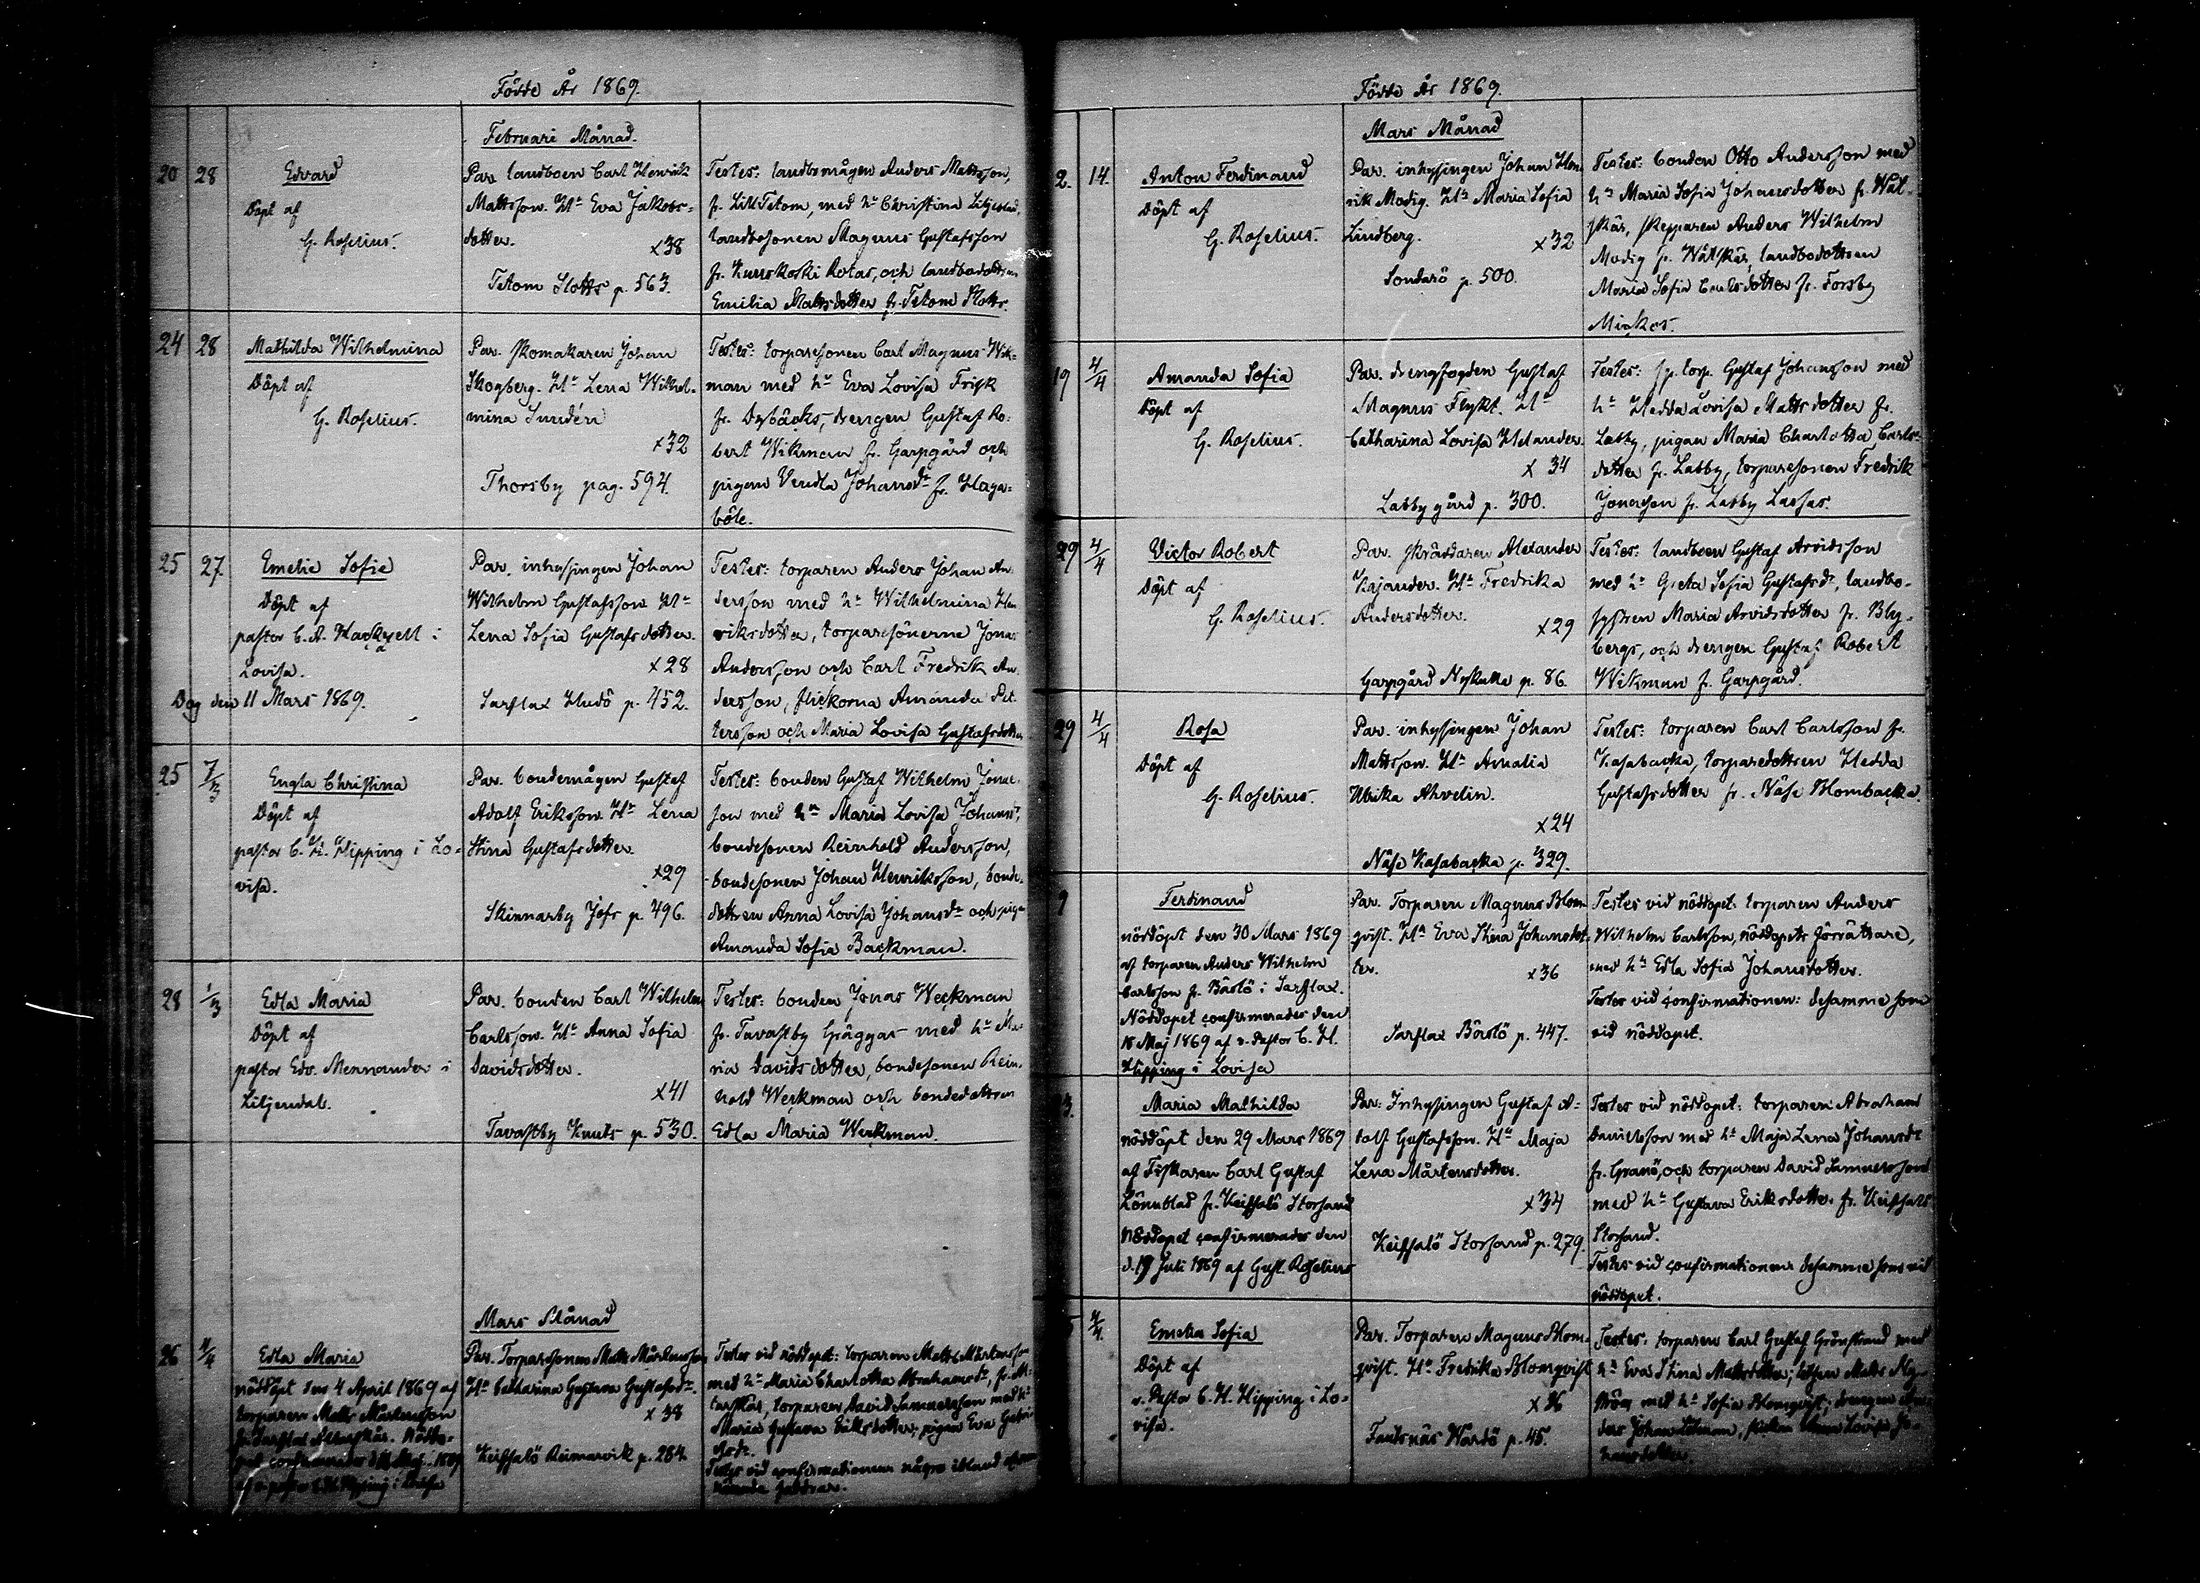 Födde År 1869.
Februari Månad.
20 28 Edvard
Döpt af
G. Roselius.
Par. landboen Carl Henrik
Mattsson. H:u Eva Jakobs-
dotter.
x38
Tetom Slotts p. 563.
Testes: landbomågen Anders Mattsson,
fr. Lill Tetom, med h:u Christina Liljeblad,
landbosonen Magnus Gustafsson
fr. Kuuskoski Rotas, och landbodottren
Emilia Mattsdotter fr. Tetom Slotts.
24 28 Mathilda Wilhelmina
Döpt af
G. Roselius.
Par. skomakaren Johan
Skogberg. H:u Lena Wilhel-
mina Sundén
x32
Thorsby pag. 594.
Testes: torparesonen Carl Magnus Wik-
man med h:u Eva Lovisa Frisk
fr. Dybäcks, drengen Gustaf Ro-
bert Wikman fr. Garpgård och
pigan Vendla Johansd:r fr. Haga-
böle.
25 27. Emelie Sofie
Döpt af
pastor C. A. Hackzell i
Lovisa.
Dog den 11 Mars 1869.
Par. inhysingen Johan
Wilhelm Gustafsson H:u
Lena Sofia Gustafsdotter.
x28
Sarflax Hudö p. 452.
Testes: torparen Anders Johan An-
dersson med h:u Wilhelmina Hen
riksdotter, torparesönerne Jonas
Andersson och Carl Fredrik An-
dersson, flickorna Amanda Pet-
tersson och Maria Lovisa Gustafsdotter
25 7/3 Engla Christina
Döpt af
pastor C. H. Hipping i Lo-
visa.
Par. bondemågen Gustaf
Adolf Eriksson. H:u Lena
Stina Gustafsdotter.
x29
Skinnarby Jofs p. 496.
Testes: bonden Gustaf Wilhelm Jonas-
son med h:u Maria Lovisa Johansd:r,
bondesonen Reinhold Andersson,
bondesonen Johan Henriksson, bonde-
dottren Anna Lovisa Johansd:r och pigan
Amanda Sofia Backman.
28 1/3 Edla Maria
Döpt af
pastor Edv. Mennander i
Liljendal.
Par. bonden Carl Wilhelm
Carlsson. H:u Anna Sofia
Davidsdotter.
x41
Tavastby Knuts p. 530.
Testes: bonden Jonas Weckman
fr. Tavastby Gräggas med h:u Ma-
ria Davidsdotter, bondesonen Rein-
hold Weckman och bondedottren
Edla Maria Weckman.
Mars Månad
26 4/4 Edla Maria
nöddöpt den 4 April 1869 af
torparen Matts Mårtensson
Par. Torparesonen Matts Mårtensson
H:u Catharina Gustava Gustafsd:r.
x38
Keipsalö Reimarvik p. 284.
Testes vid nöddopet: torparen Matts Mårtensson
med h:u Maria Charlotta Abrahamsd:r,
torparen David Samuelsson med h:u
Maria Gustava Eriksdotter, pigan Eva
Testes vid confirmationen några ibland
Födde År 1869.
Mars Månad
2. 14. Anton Ferdinand
Döpt af
G. Roselius.
Par. inhysingen Johan Hen
rik Modig. H:u Maria Sofia
Lindberg.
x32
Sondarö p. 500.
Testes: bonden Otto Andersson med
h:u Maria Sofia Johansdotter fr. Wåt-
skär, skepparen Anders Wilhelm
Modig fr. Wåtskär, landbodottren
Maria Sofia Carlsdotter fr. Forsby
Mickos.
19 4/4 Amanda Sofia
Döpt af
G. Roselius.
Par. drengfogden Gustaf
Magnus Flykt. H:u
Catharina Lovisa Helander.
x 34
Labby gård p. 300.
Testes: sp. torp. Gustaf Johansson med
h:u Hedda Lovisa Mattsdotter fr.
Labby, pigan Maria Charlotta Carls-
dotter fr. Labby, torparesonen Fredrik
Jonasson fr. Labby Lassas.
29 4/4 Victor Robert
Döpt af
G. Roselius.
Par. skräddaren Alexander
Kajander. H:u Fredrika
Andersdotter.
x29
Garpgård Nykulla p. 86.
Testes: landboen Gustaf Arvidsson
med h:u Greta Sofia Gustafsd:r, landbo-
systren Maria Arvidsdotter fr. Bly-
bergs, och drengen Gustaf Robert
Wikman fr. Garpgård.
29 4/4 Rosa
Döpt af
G. Roselius.
Par. inhysingen Johan
Mattsson. H:u Amalia
Ulrika Ahvelin.
x24
Näse Kasabacka p. 329.
Testes: torparen Carl Carlsson fr.
Kasabacka, torparedottren Hedda
Gustafsdotter fr. Näse Blombacka.
9 Ferdinand
nöddöpt den 30 Mars 1869
af torparen Anders Wilhelm
Carlsson fr. Båstö i Sarflax.
Nöddopet confirmerades den
18 Maj 1869 af v. Pastor C. H.
Hipping i Lovisa
Par. Torparen Magnus Blom-
qvist. H:u Eva Stina Johansdot-
ter.
x36
Sarflax Båstö p. 447.
Testes vid nöddopet: torparen Anders
Wilhelm Carlsson, nöddopets förrättare,
med h:u Edla Sofia Johansdotter.
Testes vid confirmationen: desamma som
vid nöddopet.
3. Maria Mathilda
nöddöpt den 29 Mars 1869
af Fiskaren Carl Gustaf
Lönnblad fr. Keipsalö Storsand
Nöddopet confirmerades den
d. 19 Juli 1869 af Gust. Roselius
Par: Inhysingen Gustaf A-
dolf Gustafsson. H:u Maja
Lena Mårtensdotter.
x34
Keipsalö Storsand p. 279.
Testes vid nöddopet: torparen Abraham
Danielsson med h:u Maja Lena Johansd:r
fr. Granö, och torparen David Samuelsson
med h:u Gustava Eriksdotter fr. Keipsalö
Storsand.
Testes vid confirmationen desamma som vid
nöddopet.
4/4 Emelia Sofia
Döpt af
v. Pastor C. H. Hipping i Lo-
visa.
Par. Torparen Magnus Blom-
qvist. H:u Fredrika Blomqvist
x36
Fantsnäs Wårdö p. 45.
Testes: torparen Carl Gustaf Grönstrand med
h:u Eva Stina Mattsdotter, Matts Ny-
ström med h:u Sofia Blomqvist, drengen An-
ders Johan